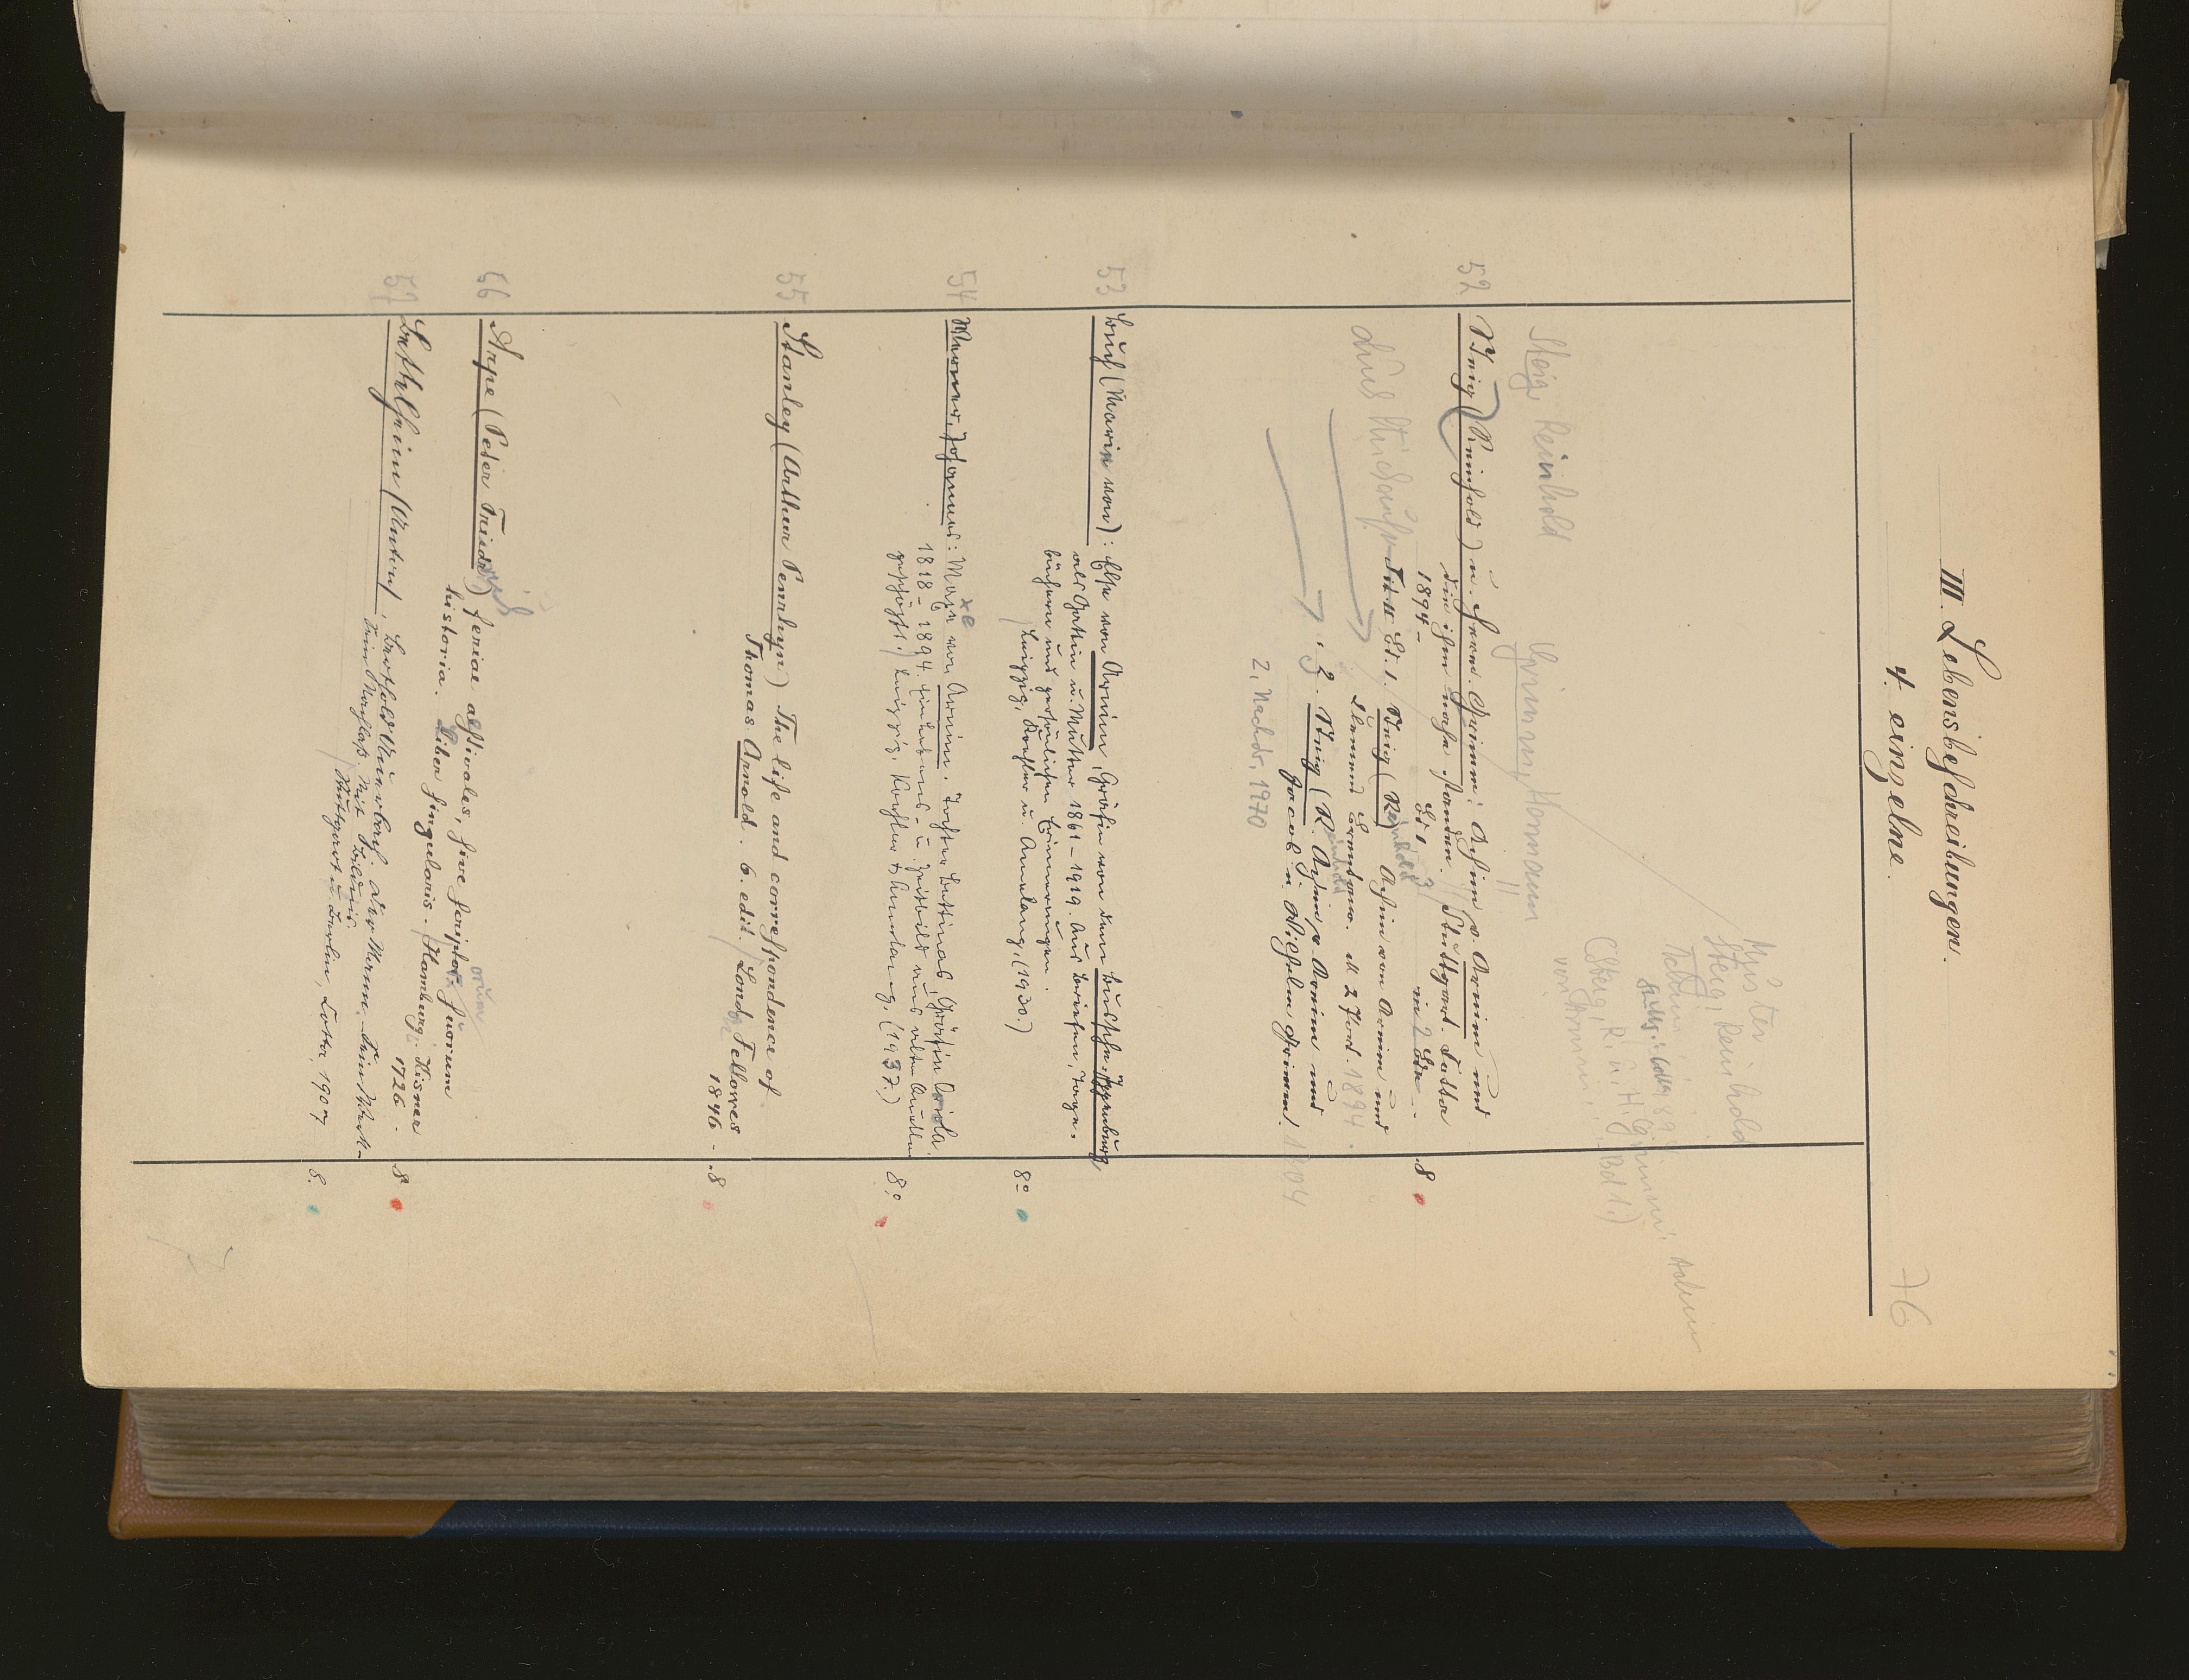 III. Lebensbeschreibungen.
4. einzelne.
76
Steig, Reinhold
Achim
(Steig, R. u. H. Grimm: Achim
von Arnim, Bd 1.)
Steig, Reinhold
Grimm, Hermann
52
Steig (Reinhold) u. Herm. Grimm: Achim v. Arnim und
die ihm nahe standen. Stuttgart. Cotta
1894 -
Bd 1
8
Bd. 1. Steig (Reinhold) Achim von Arnim und
Clemens Brentano. 1894.
3. Steig (Reinhold) Achim v. Arnim und
Jacob u. Wilhelm Grimm. 1904
2, Nachdr. 1970
53
Buch (Marie von): Else von Arnim, Gräfin von dem Bussche-Ippenburg
als Gattin u. Mutter 1861-1919. Aus Briefen, Tage-
büchern und persönlichen Erinnerungen.
Leipzig, Koehler u. Amelang, (1930.)
8°
54
Werner, Johannes: Maxe von Arnim. Tochter Bettinas, Gräfin Oriola.
1818-1894. Ein Lebens- u. Zeitbild aus alten Quellen
geschöpft. Leipzig, Koehler & Amelang. (1937.)
8°
55
Stanley (Arthur Penrhyn) The life and correspondence of
Thomas Arnold. 6. edit. London Fellowes
1846 -
8
56
Arpe (Peter Friedrich) feriae aestivales, sive scriptorum suorum
historia. Liber singularis. Hamburg. Kisner
1726.
8
57
Bettelheim (Anton), Berthold Auerbach. Der Mann. Sein Werk -
Sein Nachlaß. Mit Bildnis.
Stuttgart u. Berlin, Cotta, 1907
8.